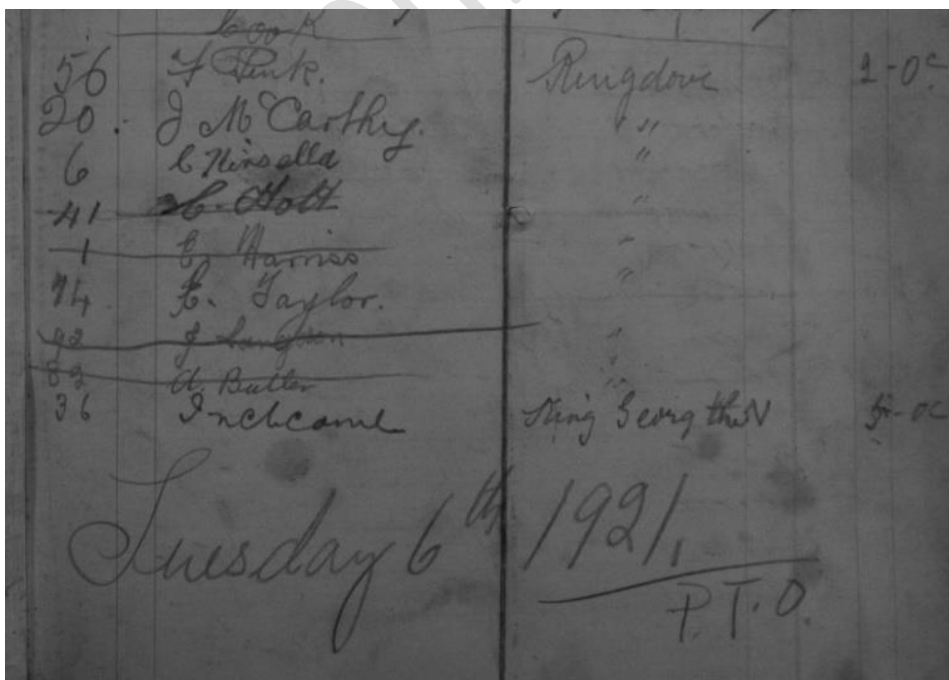 Cook
56 F Pink. Ringdove 2-0c
20. J McCarthy. " "
6 C Kinsella "
41 C. Holt "
1 C. Harriss "
74 E. Taylor. "
92 J "
82 A. Butler "
36 Inchcombe King Georg the V -0c
Tuesday 6th 1921,
P.T.O.